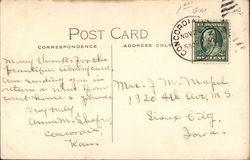 POST CARD
CORRESPONDENCE
ADDRESS ONLY
CONCORDIA
NOV
Many thanks for the
beautiful library card.
Am sending you in
return a view of our
court house & grounds
Very truly
Anna M.
Concordia
Kans.
Mrs. J. M.
1320 4th Ave, N.S.
Sioux City
Iowa.